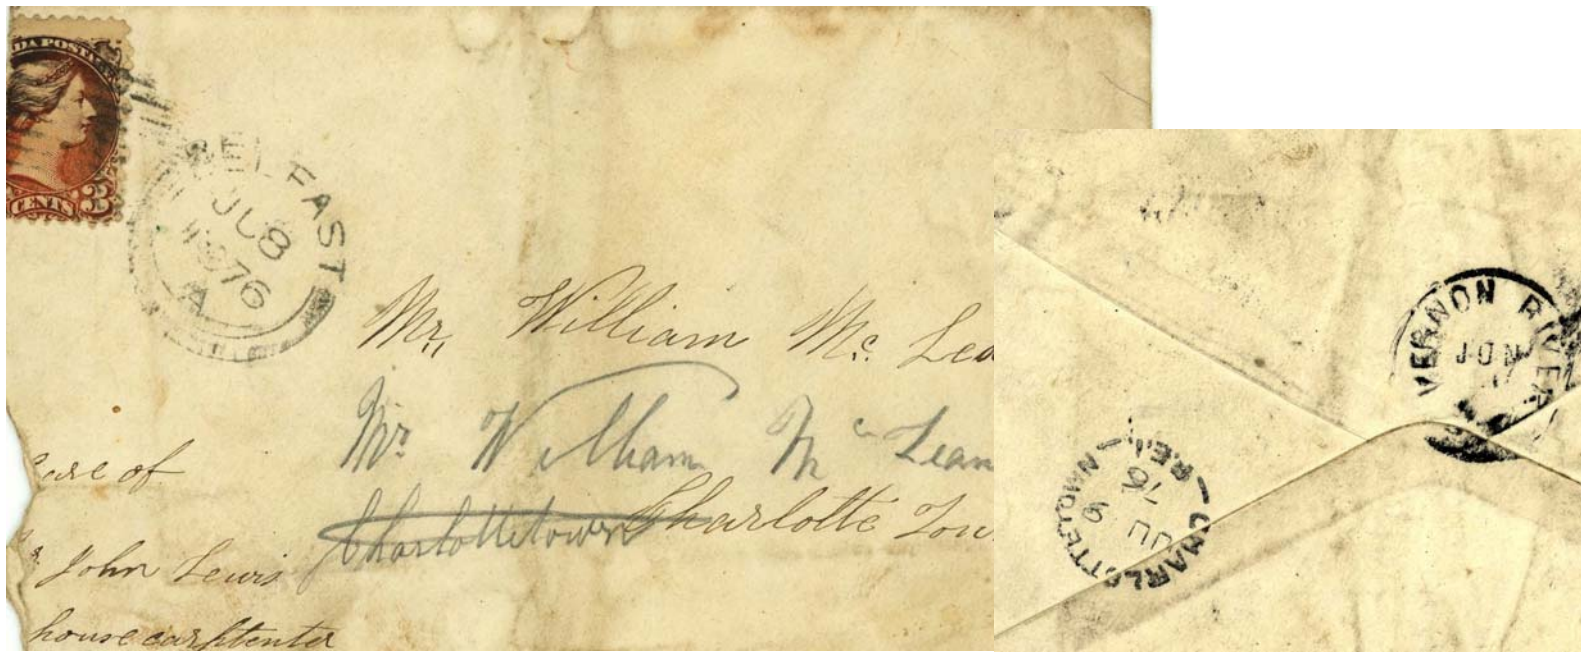 DA POSTA
CENTS 3
BELFAST
JU 8
1876
A
Mr. William Mc Lea
Mr William Mc Lean
Care of
Charlottetown Charlotte Tow
John Lewis
house carptenter
VERNON RIVER
JUN
CHARLOTTETOWN P.E.I.
JU 9
76